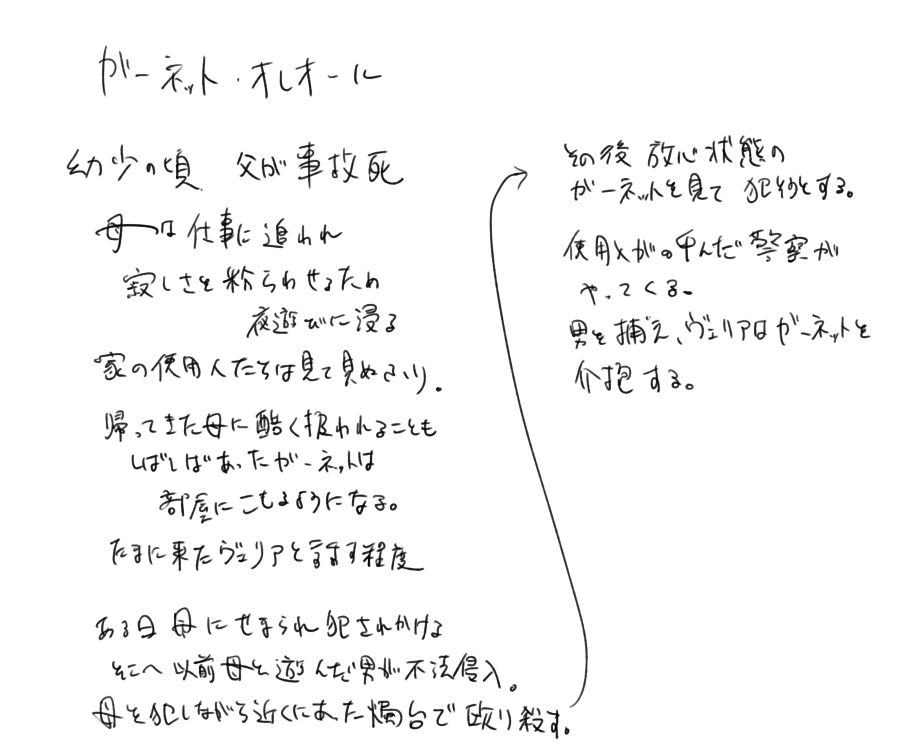 ガーネット・オレオール
幼少の頃 父が事故死
母は仕事に追われ
寂しさを紛らわせるため
夜遊びに浸る
家の使用人たちは見て見ぬふり。
帰ってきた母に酷く扱われることも
しばしばあったガーネットは
部屋にこもるようになる。
たまに来たヴェリアと話す程度
ある日 母にせまられ犯されかける
そこへ以前母と遊んだ男が不法侵入。
母を犯しながら近くにあった燭台で殴り殺す。
その後 放心状態の
ガーネットを見て 犯そうとする。
使用人がの呼んだ警察が
やってくる。
男を捕え、ヴェリアはガーネットを
介抱する。